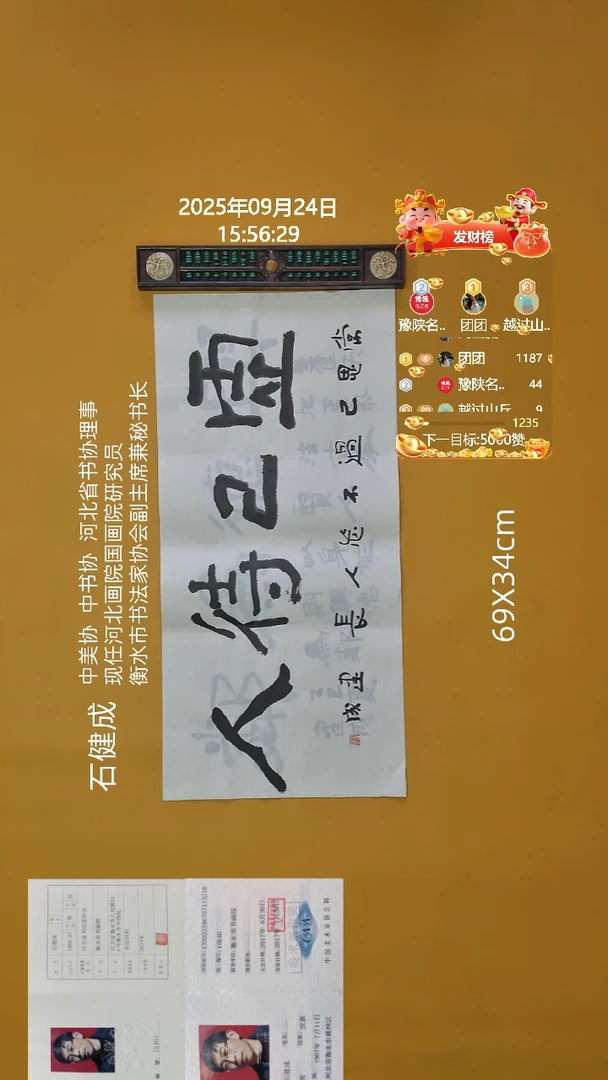 2025年09月24日
15:56:29
发财榜
豫陕名..
团团
越过山..
团团 1187
豫陕名.. 44
越过山丘 9
1235
下一目标:5000赞
石健成
中美协 中书协 河北省书协理事
现任河北画院国画院研究员
衡水市书法家协会副主席兼秘书长
虚己待人
常思己過不忘人長
建成
69X34cm
中国美术家协会制